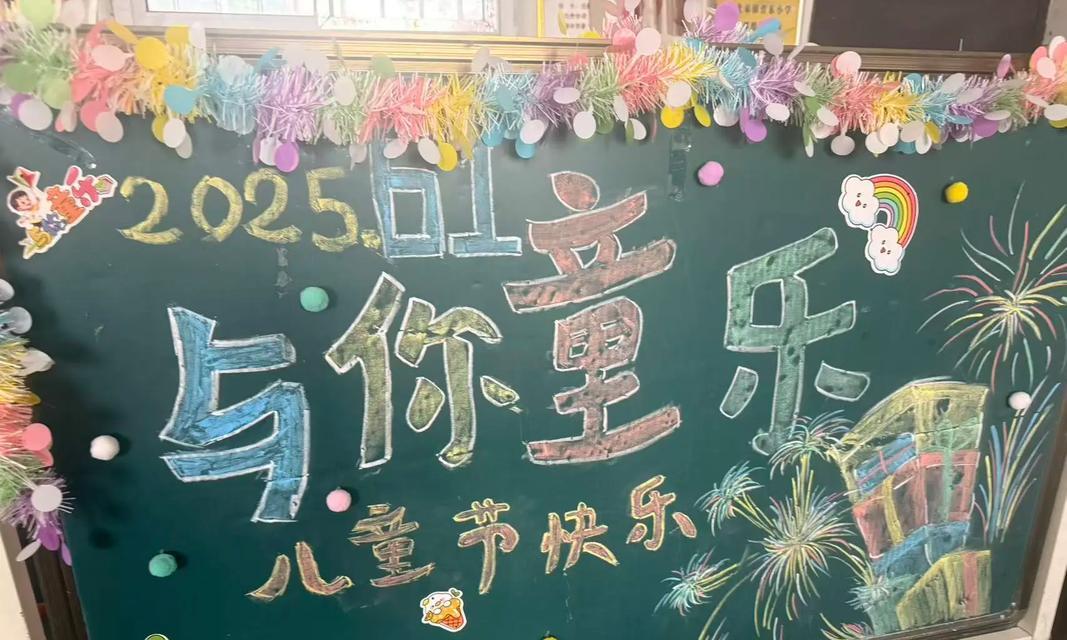 2025.61
与你童乐
儿童节快乐